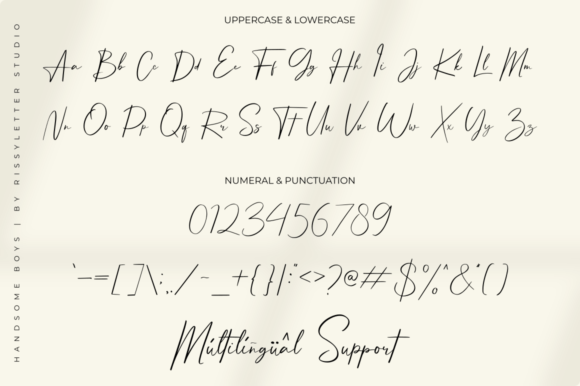 UPPERCASE & LOWERCASE
Aa Bb Cc Dd Ee Ff Gg Hh Ii Jj Kk Ll Mm
Nn Oo Pp Qq Rr Ss Tt Uu Vv Ww Xx Yy Zz
NUMERAL & PUNCTUATION
0123456789
`-=[]\;,./~_+{}|:"<>?@#$%^&*()
Múltilingüâl Support
HANDSOME BOYS | BY RISSYLETTER STUDIO